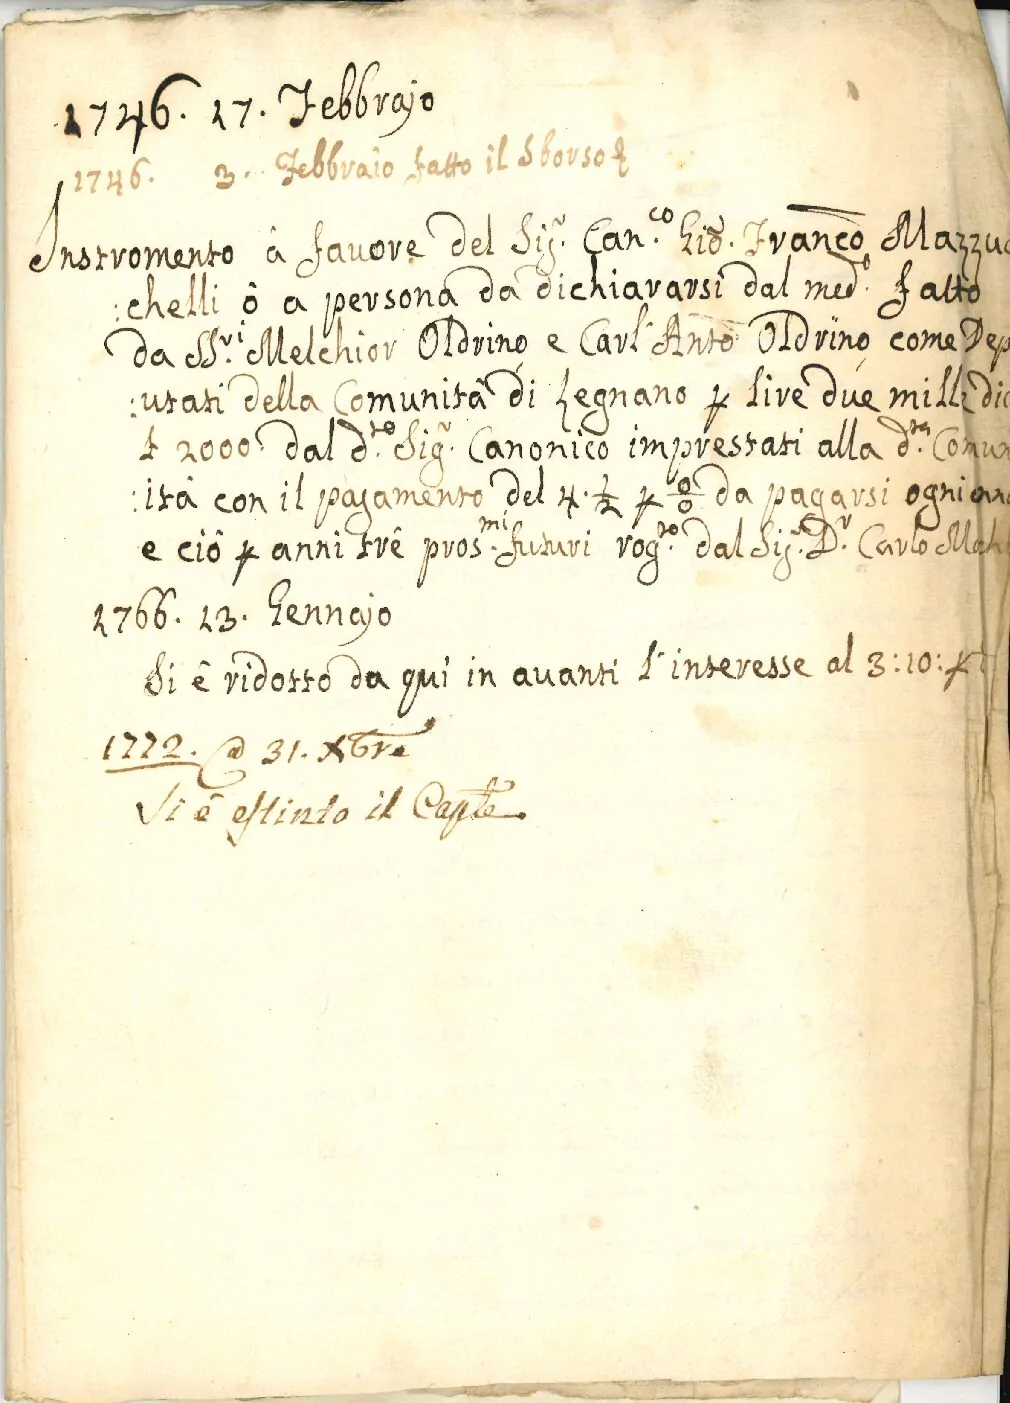 1746. 17. Febbrajo
1746. 3. Febbraio fatto il Sborso
Instromento â favore del Sig.r Can.co Gio. Franco Mazzuc
:chelli ô a persona da dichiararsi dal med.o fatto
da SS.ri Melchior Oldrino e Carl' Anto Oldrino come Dep
:utati della Comunitâ di Legnano p lire due mille dic
£ 2000 dal d.to Sig.r Canonico imprestati alla d.ta Comun
:itâ con il pagamento del 4. 1/2 p 0/0 da pagarsi ogni anno
e ciô p anni trê pros.mi futuri rog.to dal Sig.r D.r Carlo
1766. 13. Gennajo
Si ê ridotto da quî in avanti l'interesse al 3:10: p
1772. @ 31. Xbre
Si ê estinto il Caple.